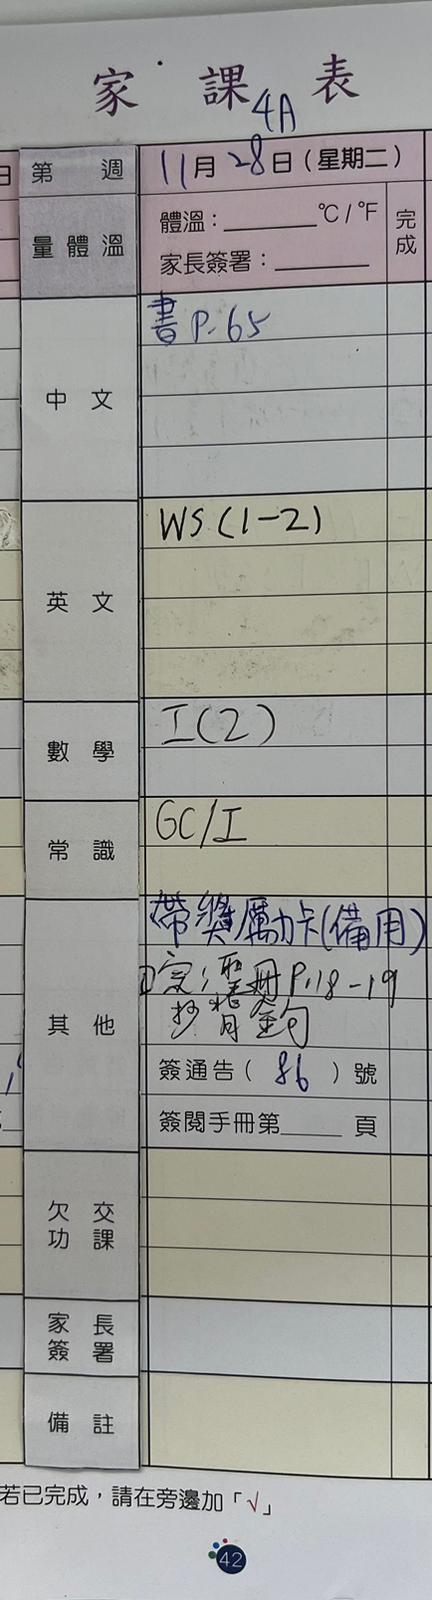 家課表
4A
第 週 11月28日(星期二)
量體溫 體溫:______℃/℉ 完成
家長簽署:______
中文 書P.65
英文 WS(1-2)
數學 I(2)
常識 GC/I
其他 帶獎勵卡(備用)
聖冊P.18-19
抄背金句
簽通告(86)號
簽閱手冊第____頁
欠交功課
家長簽署
備註
若已完成,請在旁邊加「√」
42